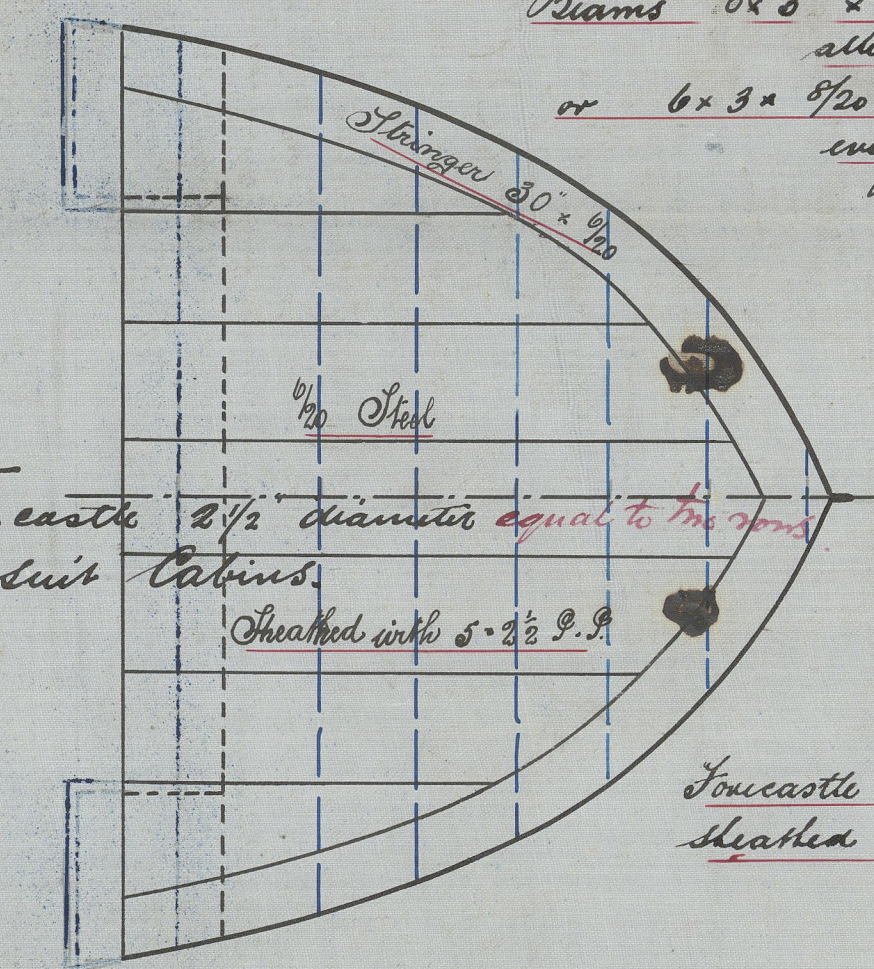 Beams
or 6 x 3 x 8/20
Stringer 30" x 6/20
6/20 Steel
castle 2 1/2" diameter equal to two rows
suit Cabins.
Sheathed with 5 - 2½ P.P.
Forecastle
sheathed